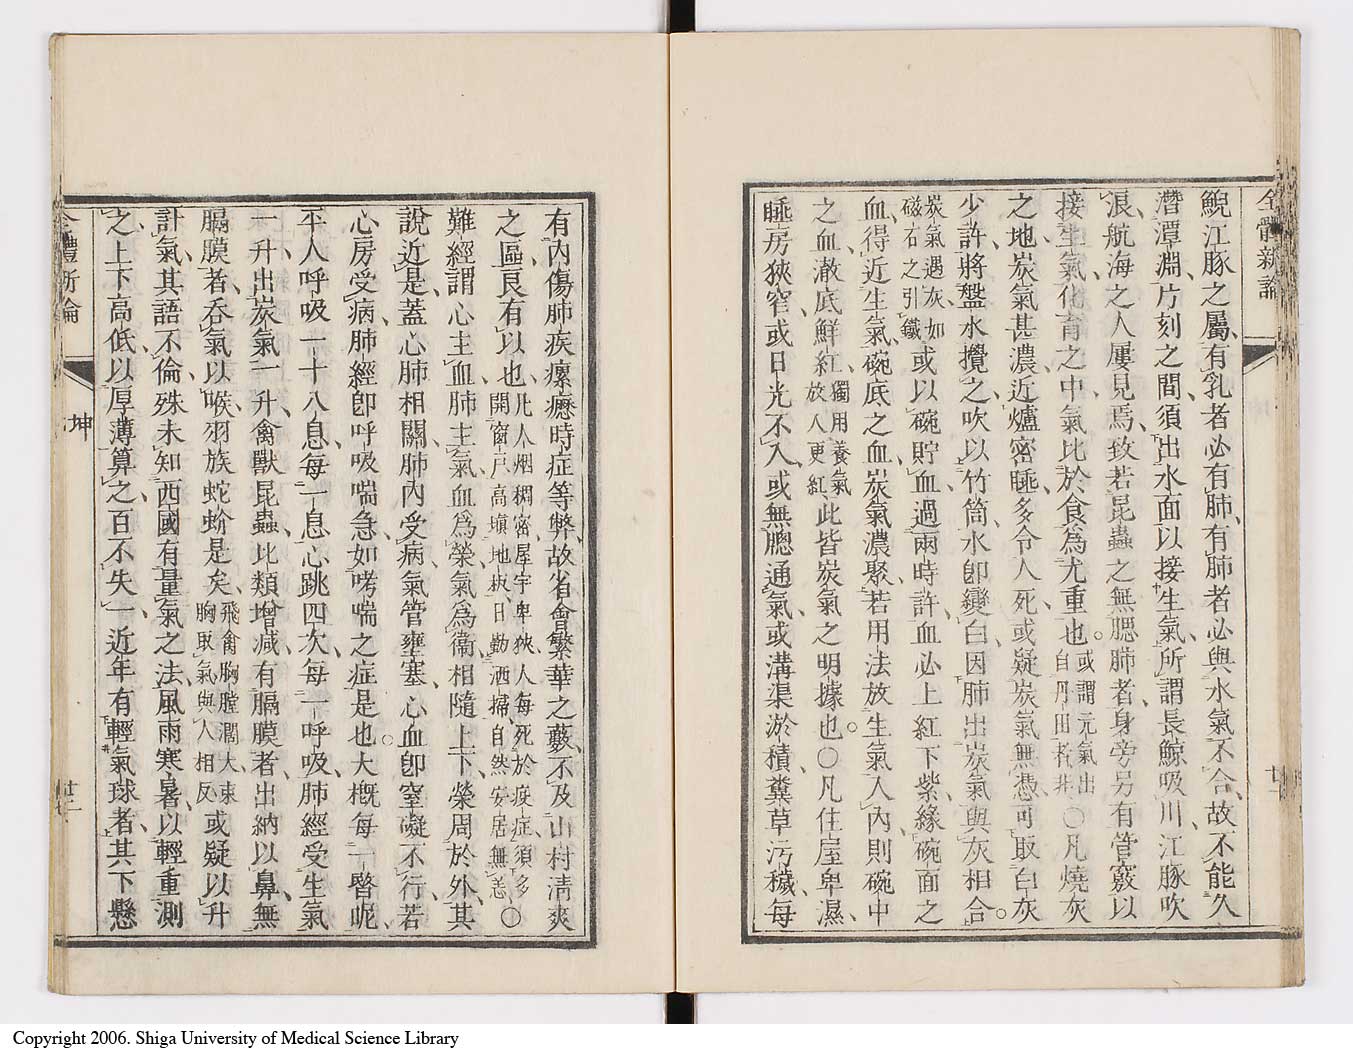 全體新論
廿一
鯢江豚之屬有乳者必有肺有肺者必與水氣不合故不能久
潛潭淵片刻之間須出水面以接生氣所謂長鯨吸川江豚吹
浪航海之人屢見焉致若昆蟲之無腮肺者身旁另有管竅以
接生氣化育之中氣比於食為尤重也或謂元氣出自丹田衹非〇凡燒灰
之地炭氣甚濃近爐密睡多令人死或疑炭氣無憑可取白灰
少許將盤水攪之吹以竹筒水卽變白因肺出炭氣與灰相合
炭氣遇灰如磁石之引鐵或以碗貯血過兩時許血必上紅下紫緣碗面之
血得近生氣碗底之血炭氣濃聚若用法放生氣入內則碗中
之血澈底鮮紅獨用養氣放入更紅此皆炭氣之明據也〇凡住屋卑濕
睡房狹窄或日光不入或無牕通氣或溝渠淤積糞草污穢每
有內傷肺疾瘰癧時症等弊故省會繁華之藪不及山村淸爽
之區良有以也凡人烟稠密屋宇卑狹人每死於疫症須多開窗戶高塡地板日勤洒掃自然安居無恙〇
難經謂心主血肺主氣血爲榮氣爲衞相隨上下榮周於外其
說近是蓋心肺相關肺內受病氣管壅塞心血卽窒礙不行若
心房受病肺經卽呼吸喘急如哮喘之症是也大槪每一晷呢
平人呼吸一十八息每一息心跳四次每一呼吸肺經受生氣
一升出炭氣一升禽獸昆蟲比類增减有膈膜者出納以鼻無
膈膜者吞氣以喉羽族蛇蚧是矣飛禽胸膛濶大束胸取氣與人相反或疑以升
計氣其語不倫殊未知西國有量氣之法風雨寒暑以輕重測
之上下高低以厚薄算之百不失一近年有輕氣球者其下懸
全體新論
坤
廿二
Copyright 2006. Shiga University of Medical Science Library